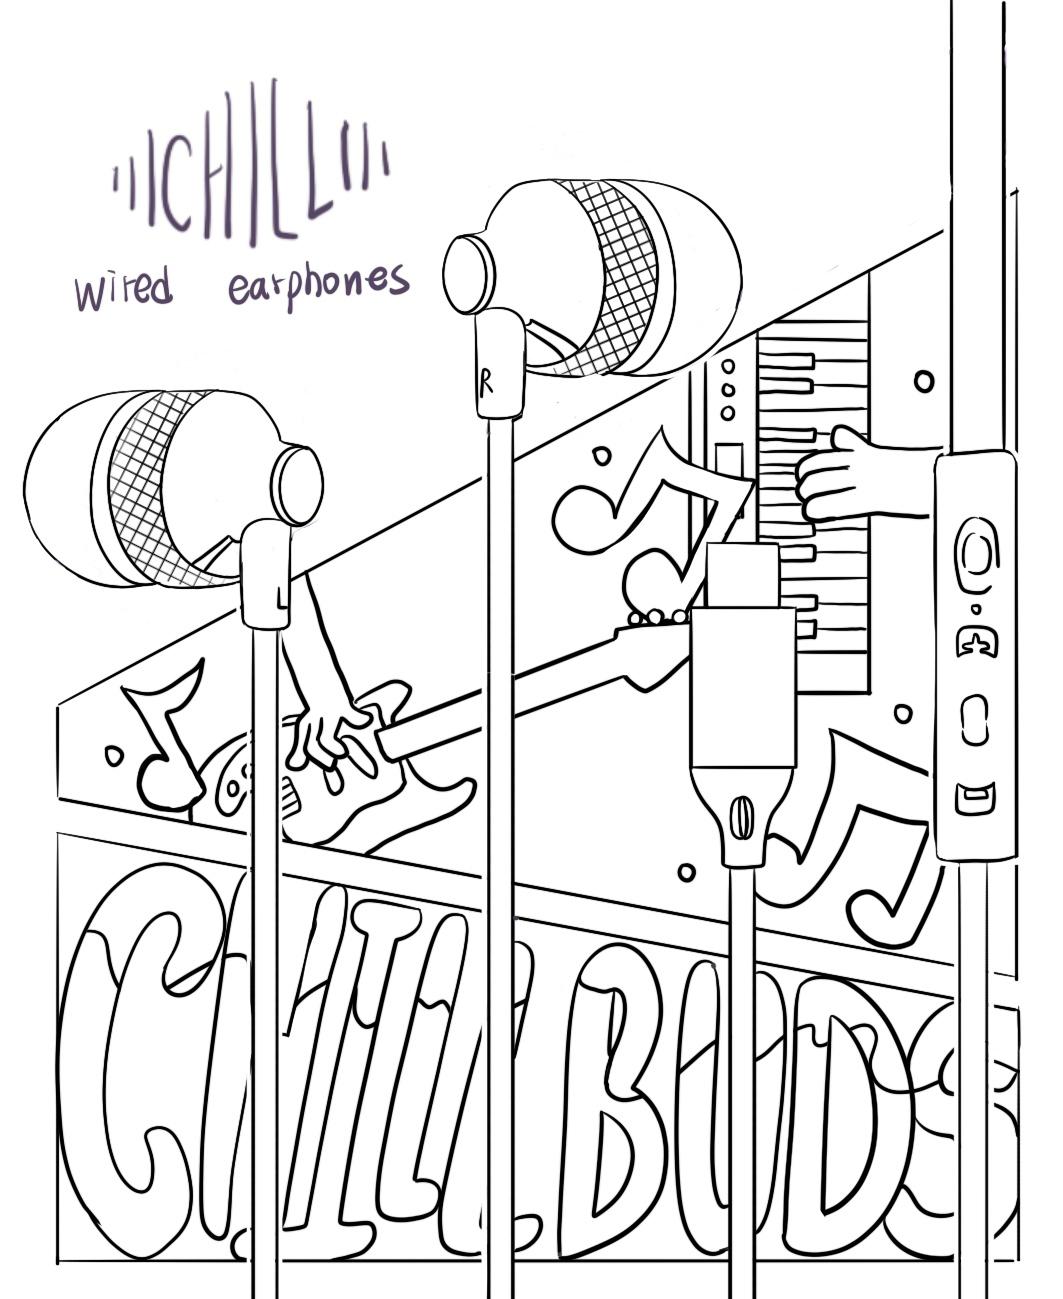 CHILL
wired earphones
R
L
CHILLBUDS